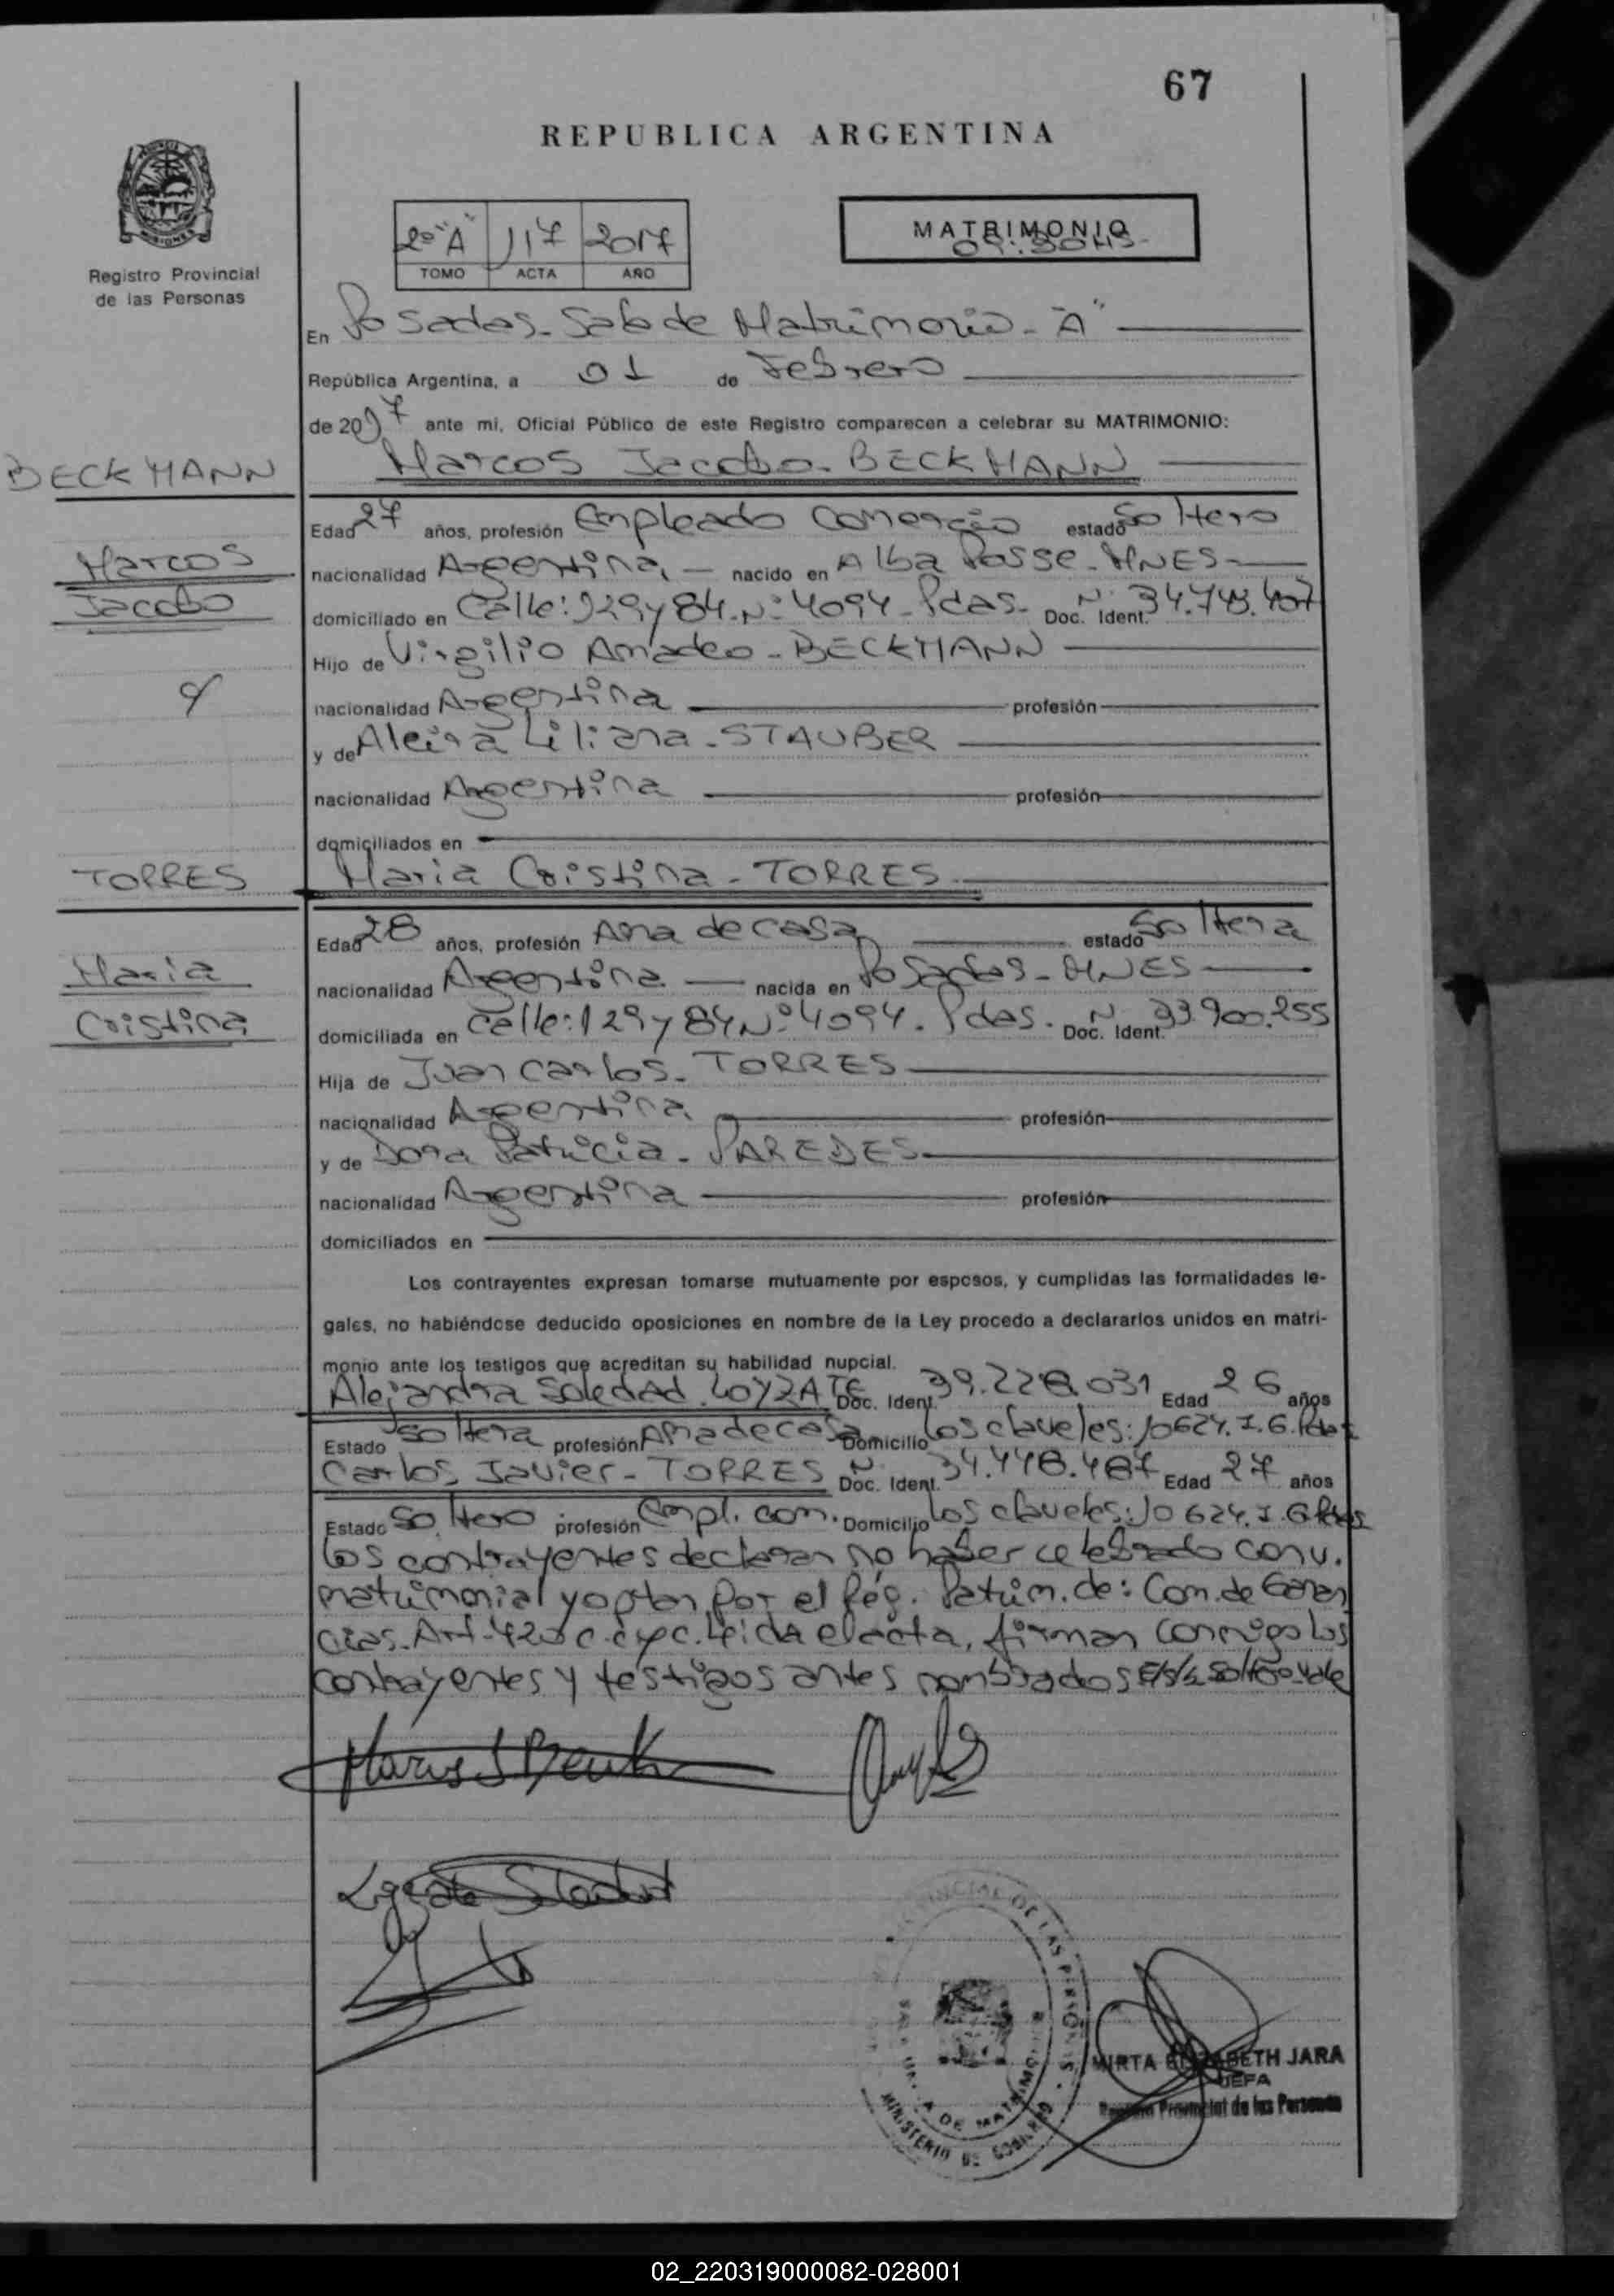 67
REPUBLICA ARGENTINA
Registro Provincial
de las Personas
2º "A" 117 2017
TOMO ACTA AÑO
MATRIMONIO
09:30 HS-
En Posadas - Sala de Matrimonio - "A"
República Argentina, a 01 de Febrero
de 2017 ante mi, Oficial Público de este Registro comparecen a celebrar su MATRIMONIO:
BECKMANN
Marcos Jacobo - BECKMANN
Edad 27 años, profesión Empleado Comercio estado Soltero
Marcos
nacionalidad Argentina - nacido en Alba Posse - MNES -
Jacobo
domiciliado en Calle: 129 y 84 - Nº 4094 - Pdas - Doc. Ident. Nº 34.743.407
Hijo de Virgilio Amadeo - BECKMANN
y
nacionalidad Argentina profesión
y de Alcira Liliana - STAUBER
nacionalidad Argentina profesión
domiciliados en
TORRES
Maria Cristina - TORRES
Edad 28 años, profesión Ama de casa estado Soltera
Maria
nacionalidad Argentina - nacida en Posadas - MNES
Cristina
domiciliada en Calle: 129 y 84 Nº 4094 - Pdas - Doc. Ident. Nº 33.900.255
Hija de Juan Carlos - TORRES
nacionalidad Argentina profesión
y de Dora Patricia - PAREDES
nacionalidad Argentina profesión
domiciliados en
Los contrayentes expresan tomarse mutuamente por esposos, y cumplidas las formalidades le-
gales, no habiéndose deducido oposiciones en nombre de la Ley procedo a declararlos unidos en matri-
monio ante los testigos que acreditan su habilidad nupcial.
Alejandra Soledad LOYZATE Doc. Ident. 39.228.031 Edad 26 años
Estado Soltera profesión Ama de casa Domicilio Los claveles: 10624. I. G. Pdas
Carlos Javier - TORRES Doc. Ident. Nº 34.448.487 Edad 27 años
Estado Soltero profesión Empl. com. Domicilio Los claveles: 10624. I. G. Pdas
Los contrayentes declaran no haber celebrado conv.
matrimonial y optan por el Rég. Patrim. de: Com. de Ganan
cias. Art. 420 c. cyc. Leida el acta, firman conmigo los
contrayentes y testigos antes nombrados E/s/r. Soltero Vale
Marcos J Beck
MINISTERIO DE GOBIERNO
MIRTA ELIZABETH JARA
JEFA
Registro Provincial de las Personas
02_220319000082-028001